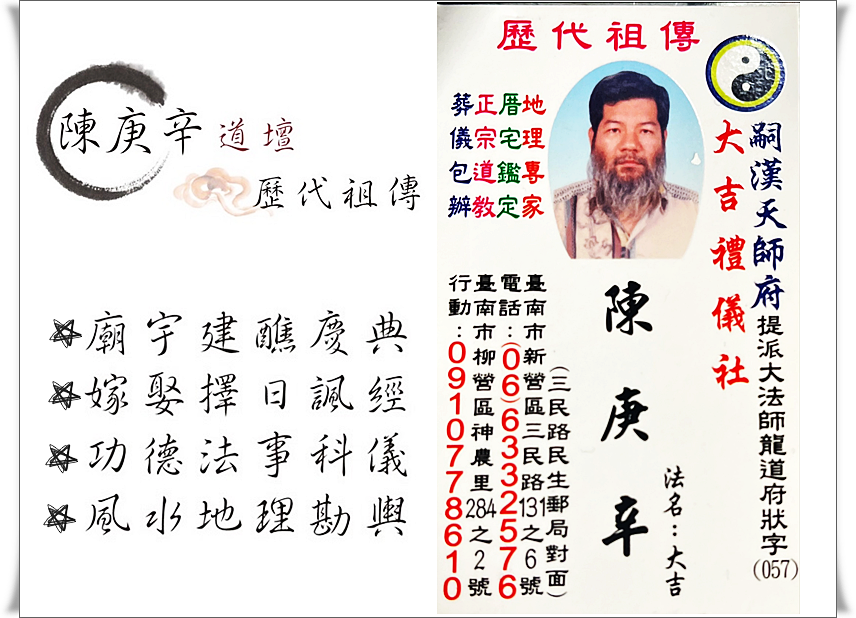 陳庚辛道壇
歷代祖傳
廟宇建醮慶典
嫁娶擇日諷經
功德法事科儀
風水地理勘輿
歷代祖傳
地理專家
厝宅鑑定
正宗道教
葬儀包辦
嗣漢天師府提派大法師龍道府狀字(057)
大吉禮儀社
陳庚辛
法名：大吉
(三民路民生郵局對面)
臺南市新營區三民路131之6號
電話：(06)6332576
臺南市柳營區神農里284之2號
行動：0910778610